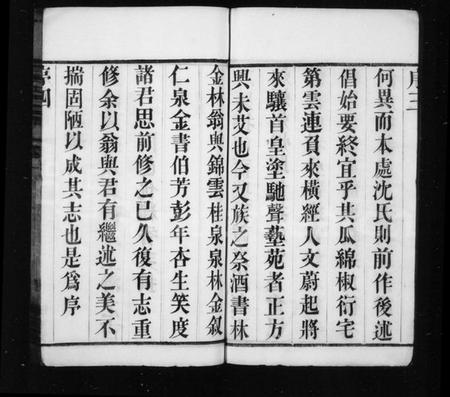 序三
何異而本處沈氏則前作後述
倡始要終宜乎其瓜綿椒衍宅
第雲連負來橫經人文蔚起將
來驤首皇塗馳聲藝苑者正方
興未艾也今又族之祭酒書林
金林翁與錦雲桂泉泉林金叙
仁泉金書伯芳彭年杏生笑度
諸君思前修之已久復有志重
修余以翁與君有繼述之美不
揣固陋以成其志也是爲序
序四